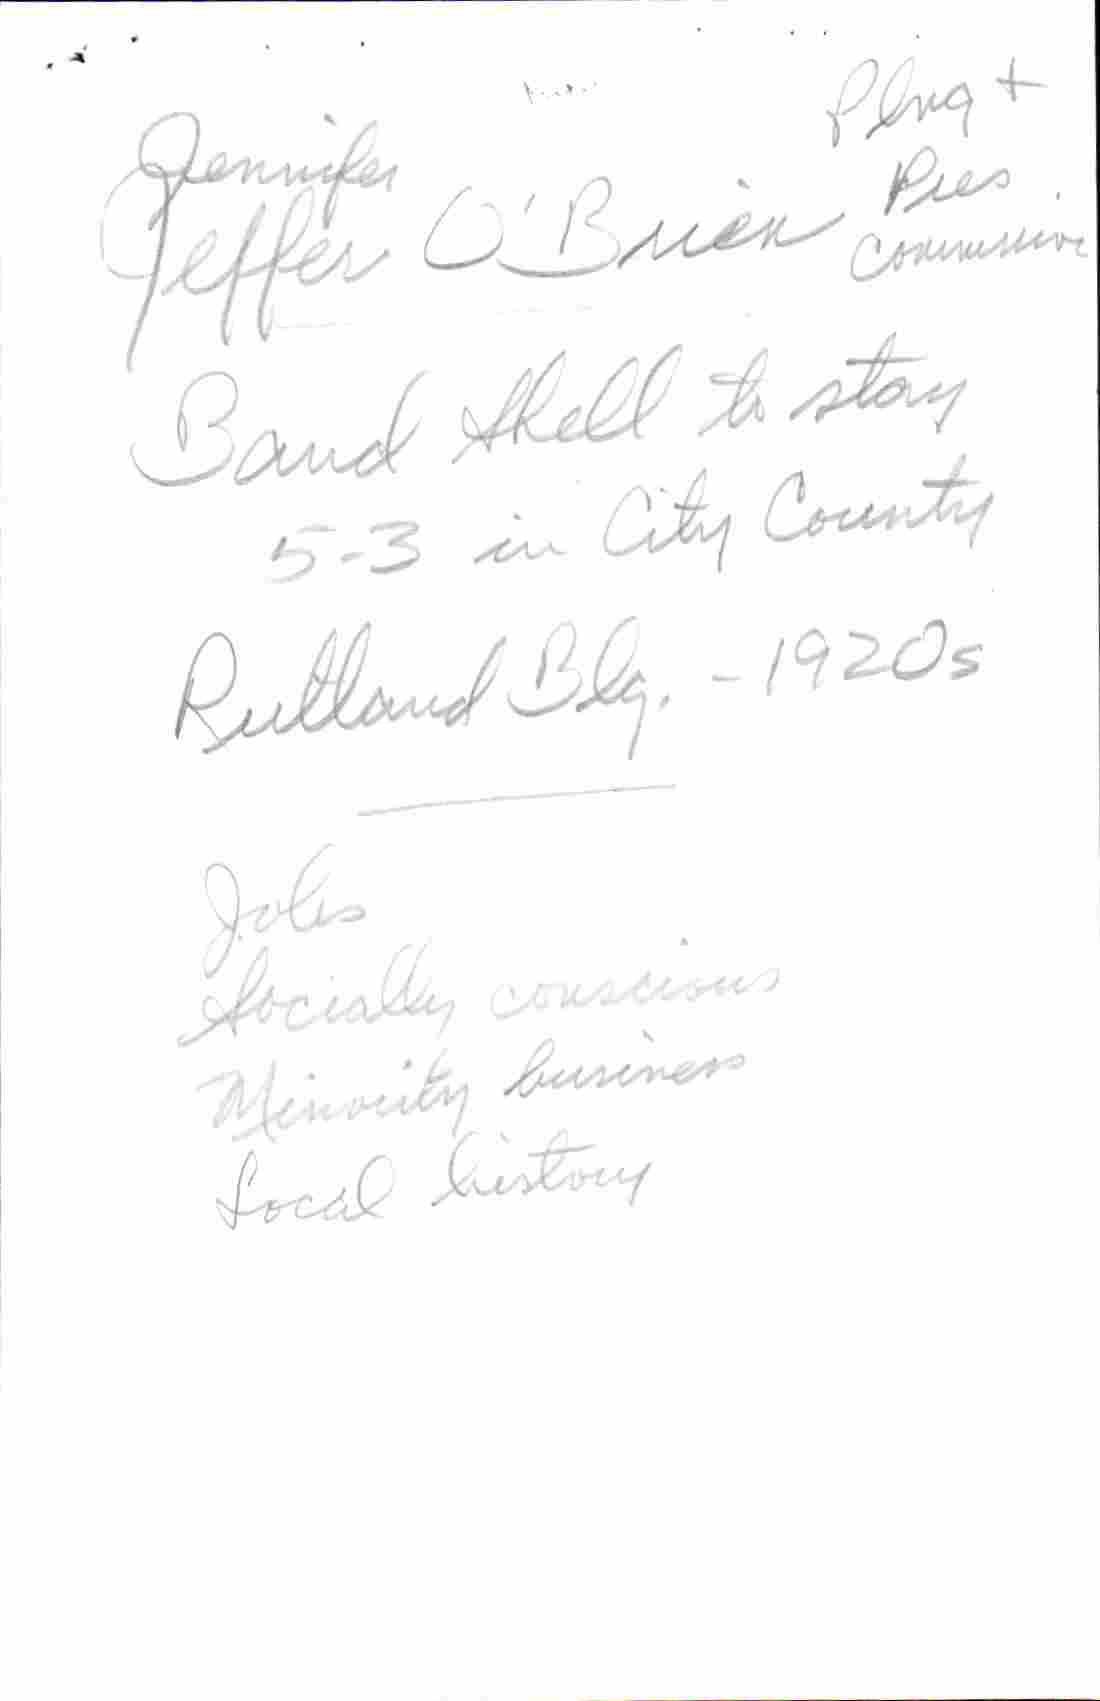 Jennifer
Jeffer O'Brien
Plng +
Pres.
Commission
Band Shell to stay
5-3 in City County
Rutland Blg. - 1920s
Jobs
Socially conscious
Minority business
Local history